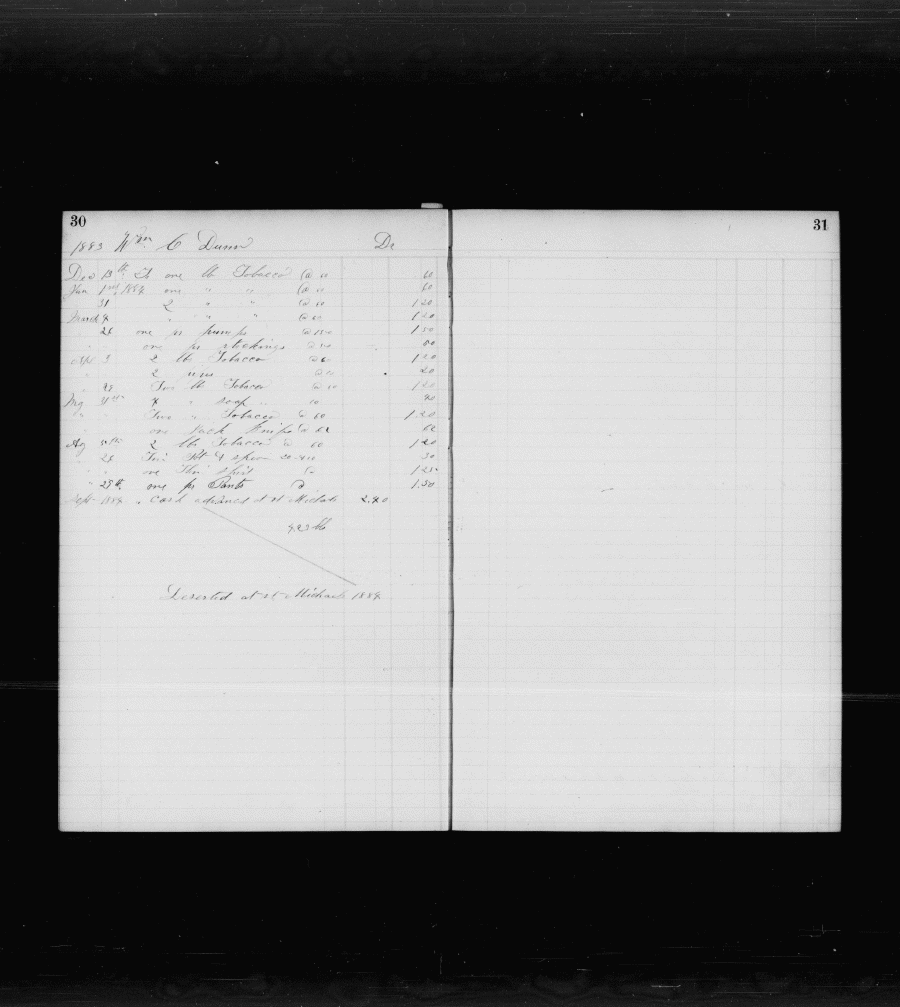 30
1883 Wm C Dunn Dr
Dec 13th To one lb Tobacco @ 60 60
Jan 1st 1884 one " " @ 60 60
" 31 2 " " @ 60 1.20
March 4 " " " @ 60 1.20
" 26 one pr pumps @ 150 1.50
" " one pr stockings @ 50 50
Apl 3 2 lbs Tobacco @ 60 1.20
" 2 @ 20
" 28 Two lb Tobacco @ 60 1.20
4 " soap " 10 40
" " Two " Tobacco @ 60 1.20
" " one Jack Knife @ 62 62
Ag 2 lbs Tobacco @ 60 1.20
" 26 Tin Pot & spoon 30
" " one Thin Shirt @ 1.25
" 25th one pr Pants @ 1.50
Sept 1884 " Cash advanced at St Michals 2.40
Deserted at St Michaels 1884
31